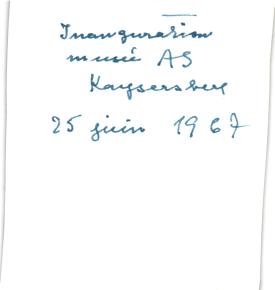 Inauguration
musée AS
Kaysersberg
25 juin 1967